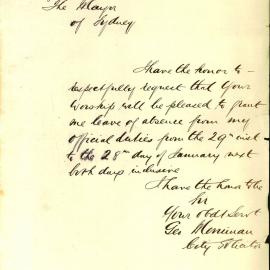 The Mayor
of Sydney
I have the honor to
respectfully request that Your
Worship will be pleased to grant
me leave of absence from my
official duties from the 29th inst
to the 28th day of January next
both days inclusive
I have the honor to be
Sir
Your obdt Servt
Geo Merriman
City Solicitor